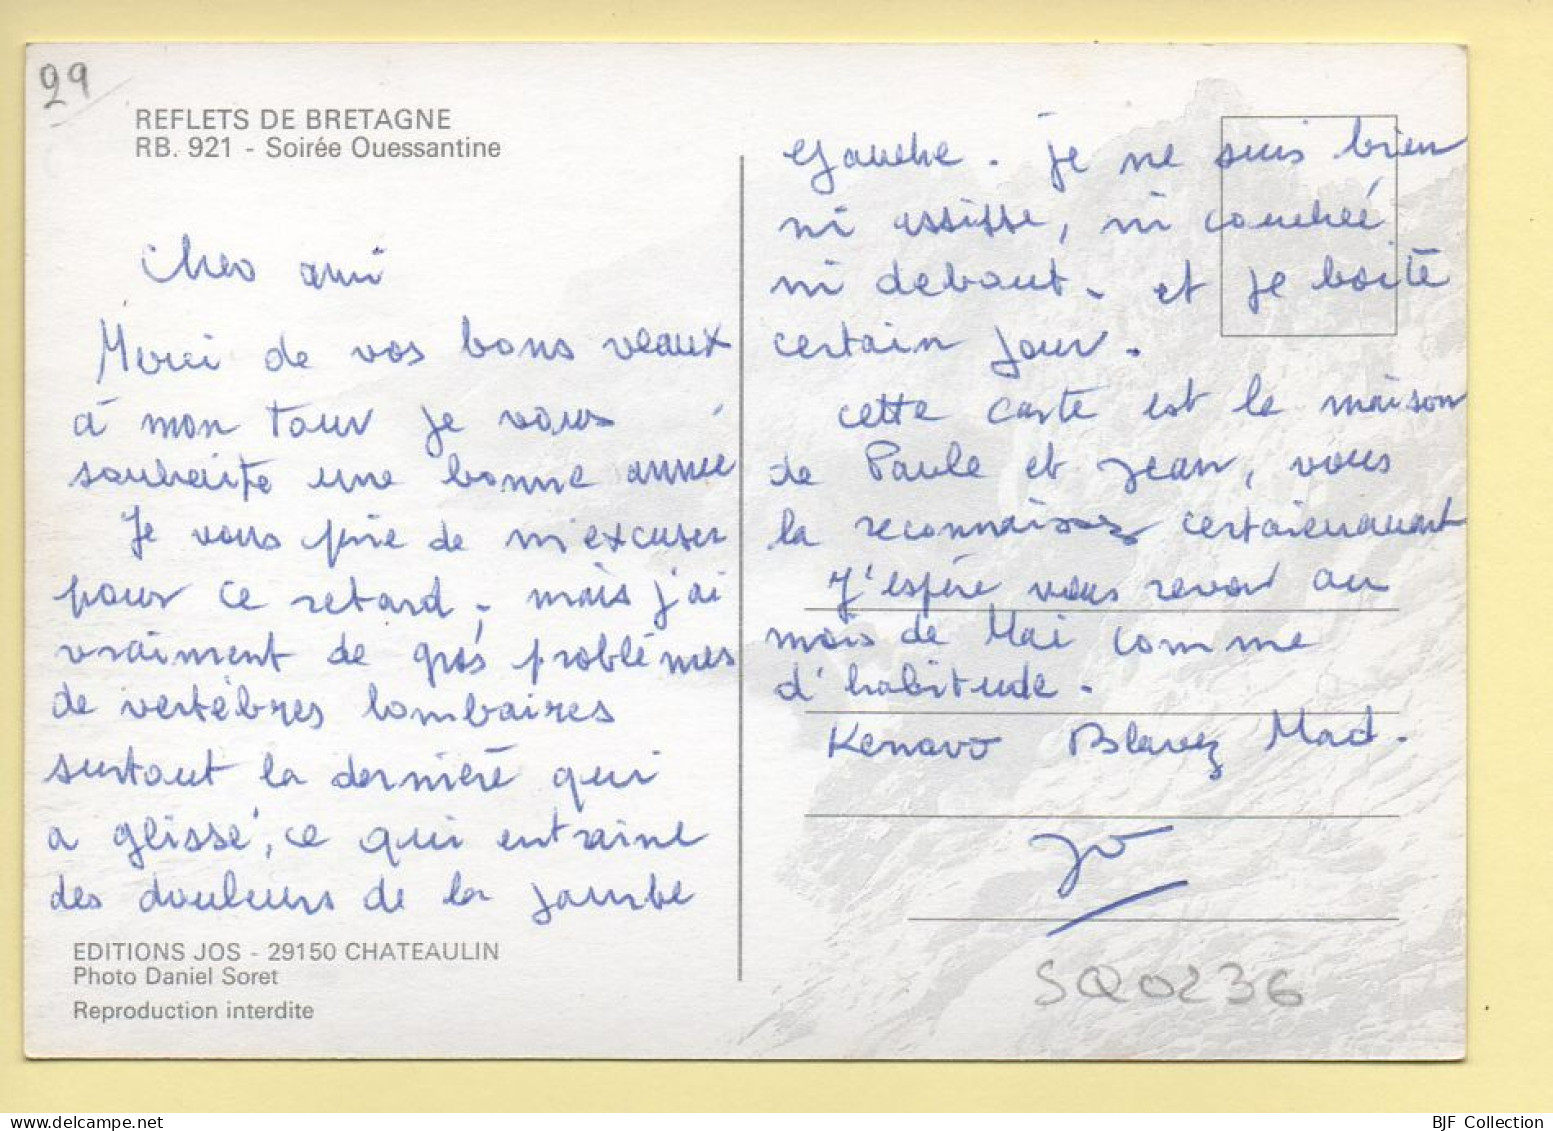 29
REFLETS DE BRETAGNE
RB. 921 - Soirée Ouessantine
Cher ami
Merci de vos bons veaux
à mon tour je vous
souhaite une bonne année
Je vous prie de m'excuser
pour ce retard, mais j'ai
vraiment de gros problèmes
de vertèbres lombaires
surtout la dernière qui
a glissé, ce qui entraine
des douleurs de la jambe
EDITIONS JOS - 29150 CHATEAULIN
Photo Daniel Soret
Reproduction interdite
Gauche. je ne suis bien
ni assisse, ni couchée
ni debout. et je boite
certain jour.
cette carte est la maison
de Paule et Jean, vous
la reconnaissez certainement
J'espère vous revoir au
mois de Mai comme
d'habitude.
Kenavo Blavez Mad.
Jo
SQ0236
BJF Collection